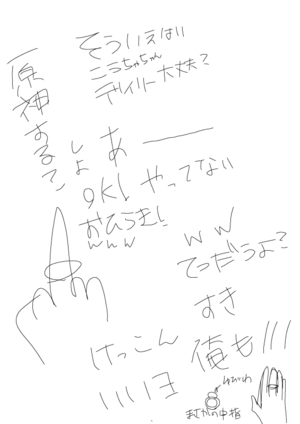 原神する?
そういえばい
こうちゃちゃん
デイリー大丈夫?
しよ
あ——
OK! やってない
おひらき!
www
ww
てつだうよ?
すき
けっこん
俺も///
いいヨ
ゆびわ
まさかの中指